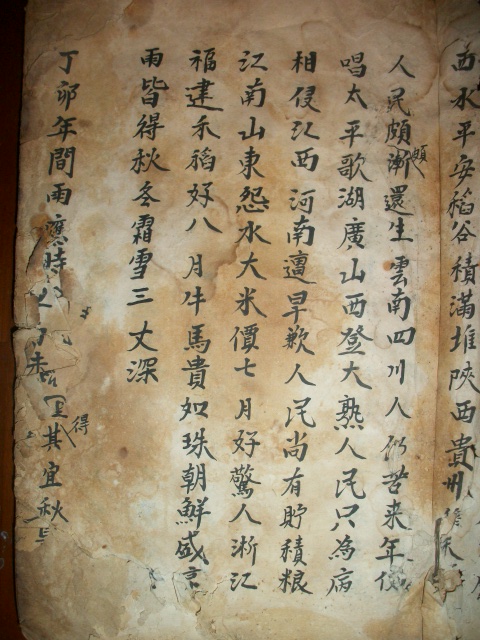 西水平安稻谷積滿堆陝西貴州
人民頗漸還生雲南四川人仍苦来年
唱太平歌湖廣山西登大熟人民只為病
相侵江西河南邉旱歉人民尚有貯積粮
江南山東怨水大米價七月好驚人浙江
福建禾稻好八月牛馬貴如珠朝鮮盛
雨皆得秋冬霜雪三丈深
丁卯年間雨應時其宜秋
得